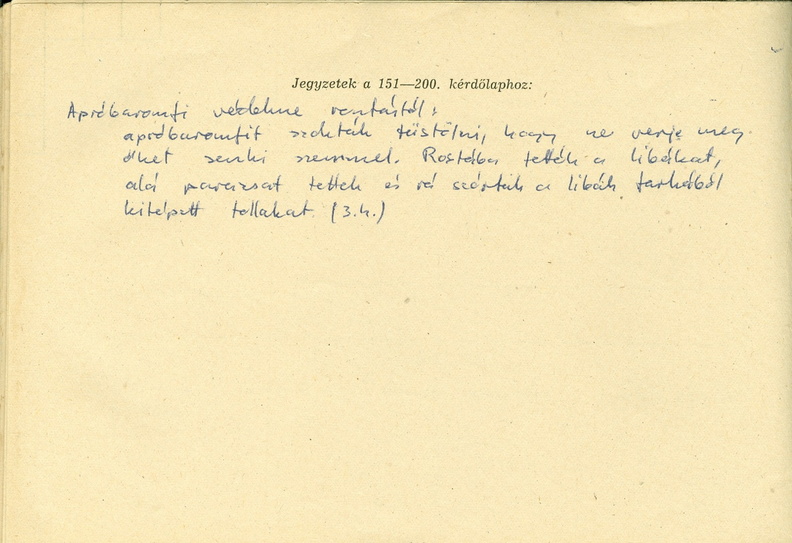 Jegyzetek a 151—200. kérdőlaphoz:
Apróbaromfi védelme rontástól:
apróbaromfit szokták füstölni, hogy ne verje meg
őket senki szemmel. Rostába tették a libákat,
alá parazsat tettek és rá szórták a libák farkából
kitépett tollakat. (3.h.)